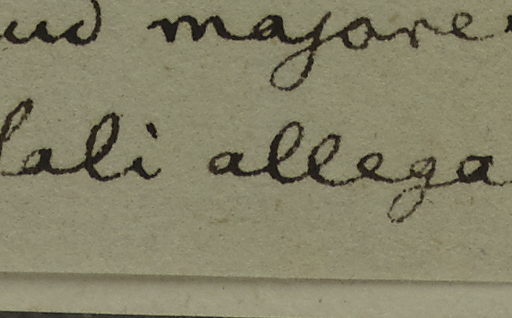 ud majore
lali allega